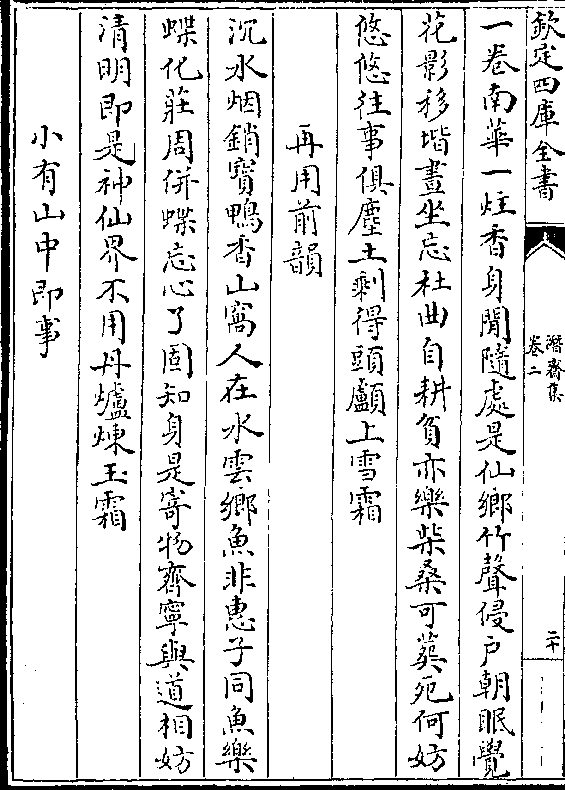 欽定四庫全書
潛齋集
卷二
二十
一卷南華一炷香身閒隨處是仙鄉竹聲侵戶朝眠覺
花影移堦晝坐忘杜曲自耕貧亦樂柴桑可葬死何妨
悠悠往事俱塵土剩得頭顱上雪霜
再用前韻
沉水烟銷寶鴨香山窩人在水雲鄉魚非惠子同魚樂
蝶化莊周併蝶忘心了固知身是寄物齊寧與道相妨
清明即是神仙界不用丹爐煉玉霜
小有山中即事